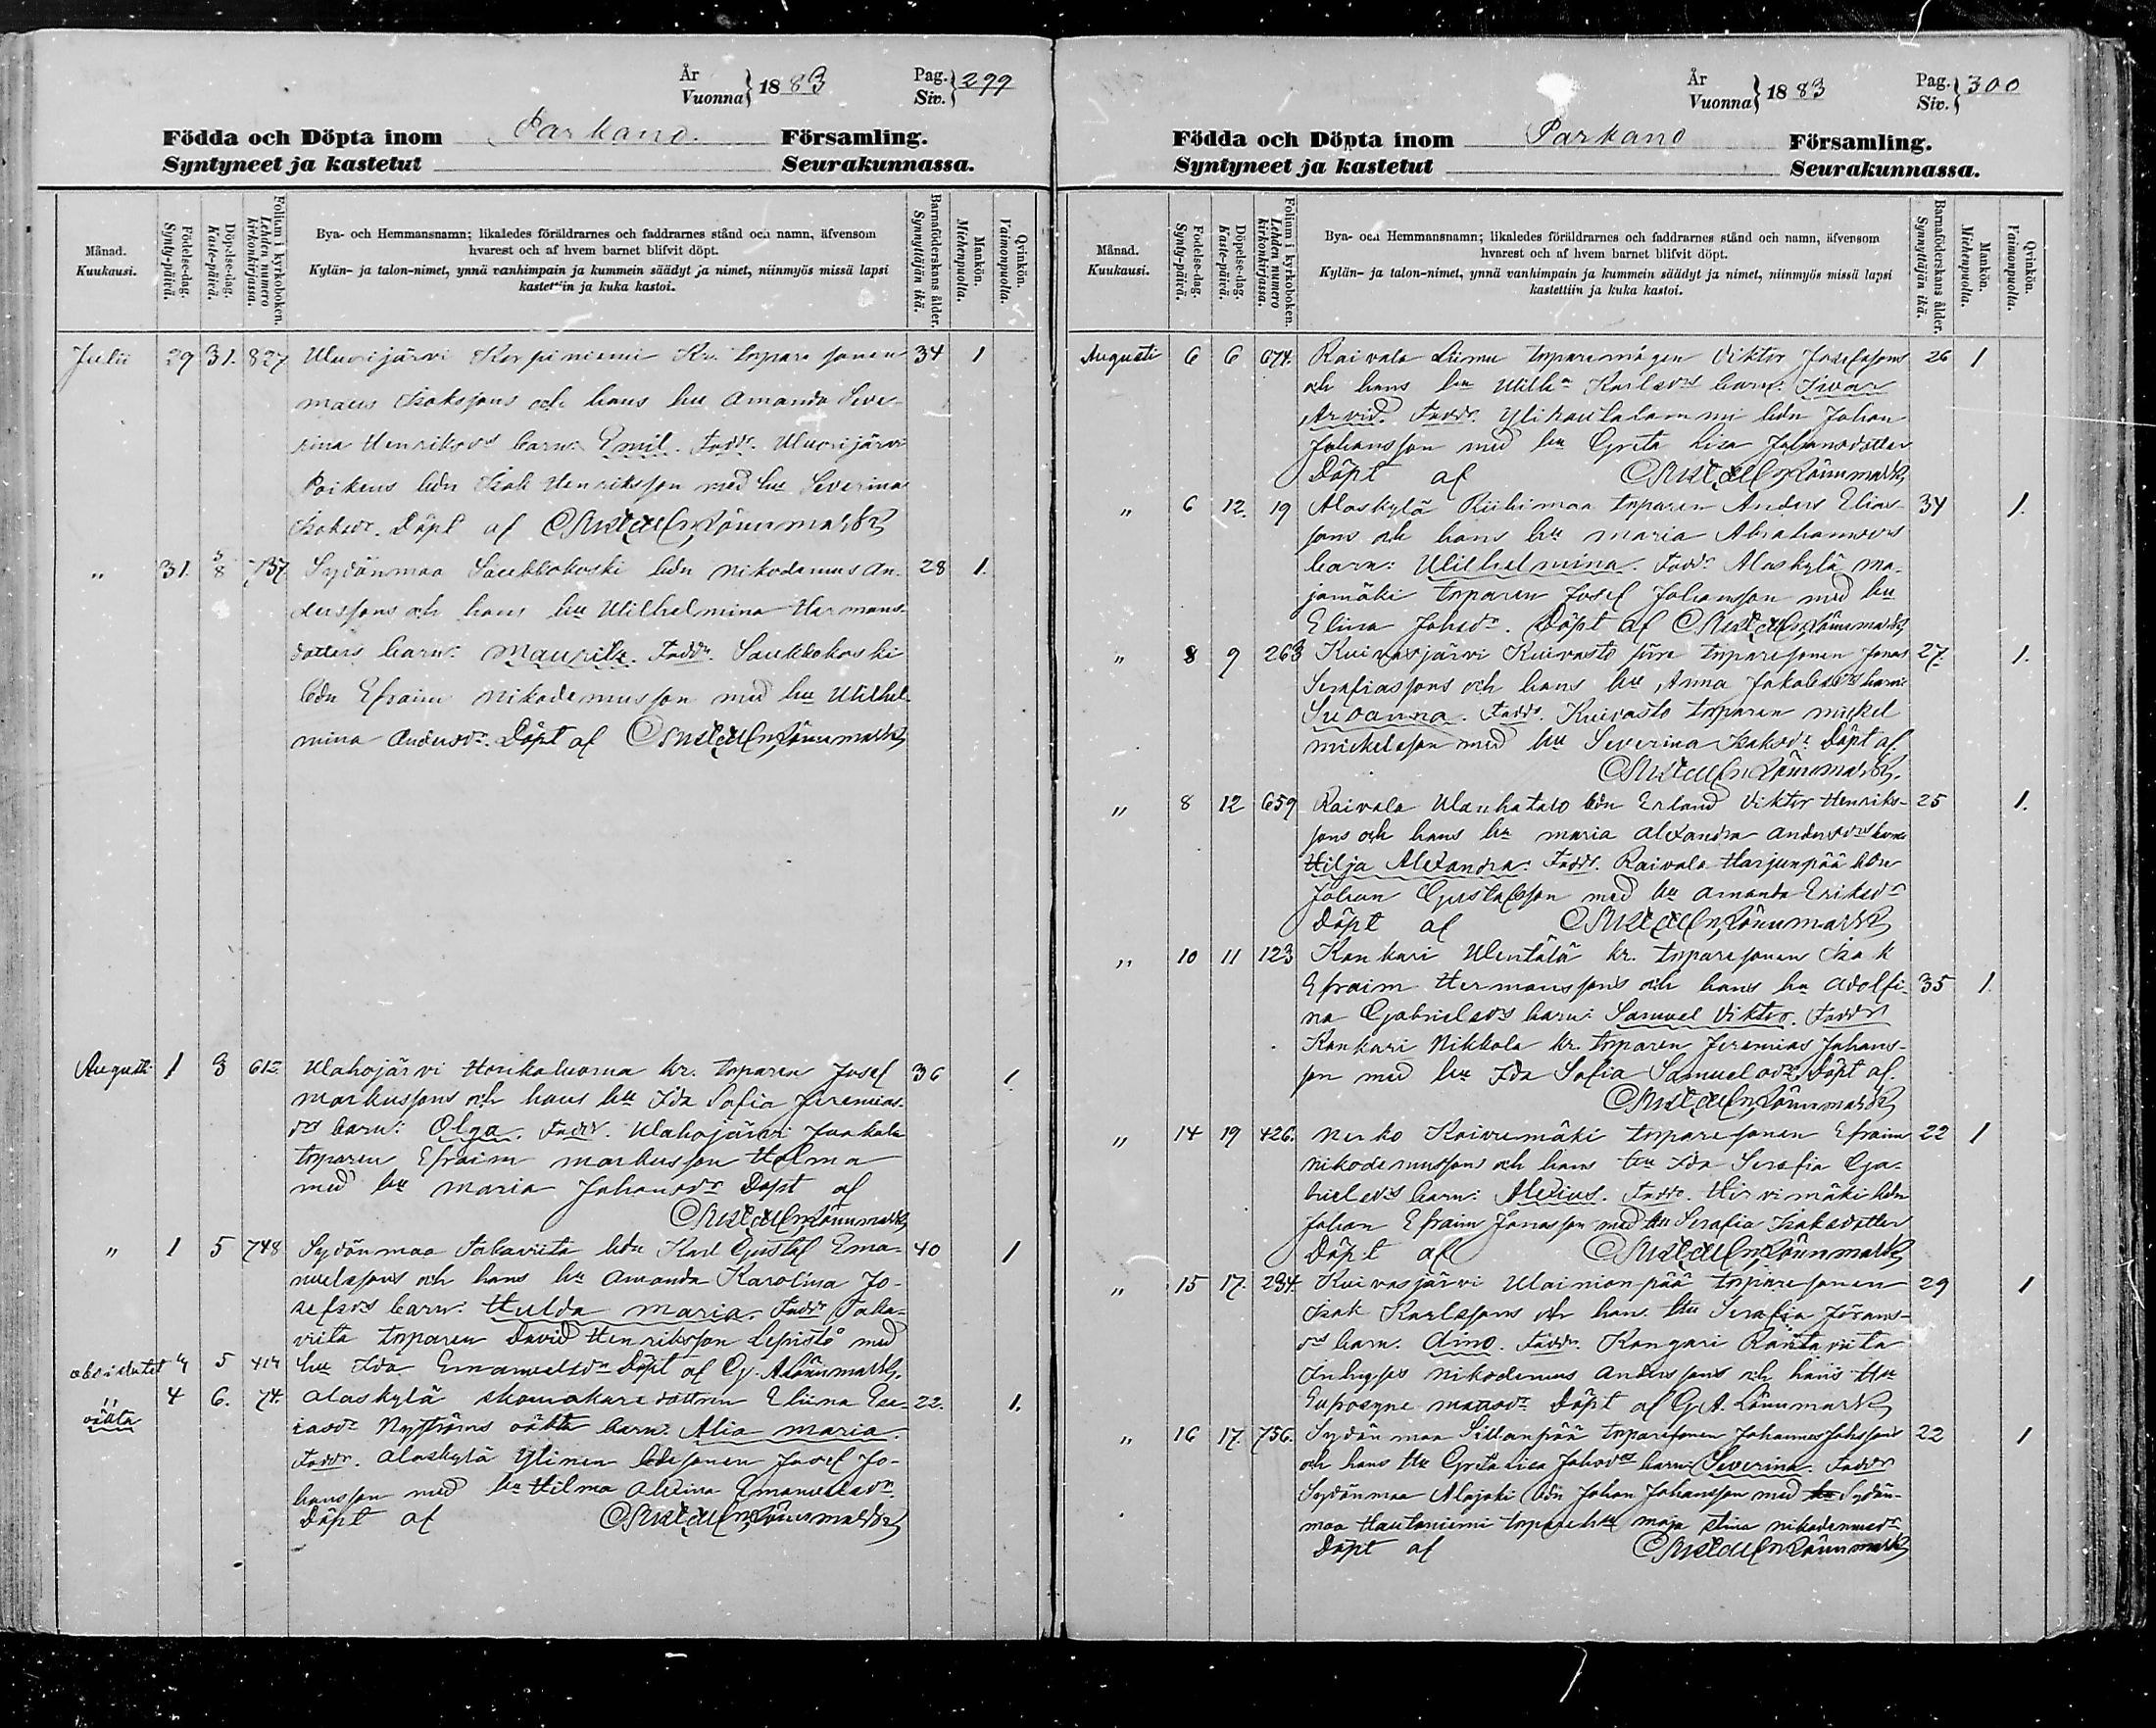 År
Vuonna } 1883
Pag.
Siv. } 299
Födda och Döpta inom Parkano. Församling.
Syntyneet ja kastetut Seurakunnassa.
Månad.
Kuukausi.
Födelse-dag.
Synty-päivä.
Döpelse-dag.
Kaste-päivä.
Folium i kyrkoboken.
Lehden numero kirkonkirjassa.
Bya- och Hemmansnamn; likaledes föräldrarnes och faddrarnes stånd och namn, äfvensom
hvarest och af hvem barnet blifvit döpt.
Kylän- ja talon-nimet, ynnä vanhimpain ja kummein säädyt ja nimet, niinmyös missä lapsi
kastettiin ja kuka kastoi.
Barnaföderskans ålder.
Synnyttäjän ikä.
Mankön.
Miehenpuolta.
Qvinkön.
Vaimonpuolta.
Julii 29 31. 827 Wuorijärvi Korpiniemi Kr. torpare sonen 34 1
Isaksons och hans hu Amanda Seve-
rina Henriksdrs barn: Emil. Faddr. Wuorijärvi
bdn Isak Henriksson med hu Severina
Isaksdr. Döpt af Gustaf Ad. Lönnmark
" 31. 5/8 737 Sydänmaa Saukkokoski bdn Nikodemus An- 28 1.
derssons och hans hu Wilhelmina Hermans-
dotters barn: Mauritz. Faddr. Saukkokoski
bdn Efraim Nikodemusson med hu Wilhel-
mina Andersdr. Döpt af Gustaf Ad. Lönnmark
Augusti 1 3 612 Wahojärvi kr. torparen Josef 36 1
Markussons och hans hu Ida Sofia Jeremias-
drs barn: Olga. Faddr. Wahojärvi
torparen Efraim Markusson Holma
med hu Maria Johansdr Döpt af
Gustaf Ad. Lönnmark
" 1 5 748 Sydänmaa Takaviita bdn Karl Gustaf Ema- 40 1
nuelssons och hans hu Amanda Karolina Jo-
sefsdrs barn: Hulda Maria. Faddr Taka-
viita torparen David Henriksson Lepistö med
4 5 414 hu Ida Emanuelsdr Döpt af G. A. Lönnmark.
" oäkta 4 6. 74. Alaskylä skomakaredottren Eliina Esa- 22. 1.
iasdr Nyströms oäkta barn: Alia Maria.
Faddr. Alaskylä Ylinen bdesonen Josef Jo-
hansson med hu Hilma Alexina Emanuelsdr.
Döpt af Gustaf Ad. Lönnmark
År
Vuonna } 1883
Pag.
Siv. } 300
Födda och Döpta inom Parkano Församling.
Syntyneet ja kastetut Seurakunnassa.
Månad.
Kuukausi.
Födelse-dag.
Synty-päivä.
Döpelse-dag.
Kaste-päivä.
Folium i kyrkoboken.
Lehden numero kirkonkirjassa.
Bya- och Hemmansnamn; likaledes föräldrarnes och faddrarnes stånd och namn, äfvensom
hvarest och af hvem barnet blifvit döpt.
Kylän- ja talon-nimet, ynnä vanhimpain ja kummein säädyt ja nimet, niinmyös missä lapsi
kastettiin ja kuka kastoi.
Barnaföderskans ålder.
Synnyttäjän ikä.
Mankön.
Miehenpuolta.
Qvinkön.
Vaimonpuolta.
Augusti 6 6 674. Raivala Liimu torparemågen Viktor Josefssons 26 1
och hans hu Wilh:a Karlsdrs barn: Iivar
Arvid. Faddr. bdn Johan
Johansson med hu Greta Lisa Johansdotter
Döpt af Gustaf Ad. Lönnmark
" 6 12. 19 Alaskylä Riihimaa torparen Anders Elias- 34 1.
sons och hans hu Maria Abrahamsdrs
barn: Wilhelmina. Faddr Alaskylä Ma-
jamäki torparen Josef Johansson med hu
Elina Johsdr. Döpt af Gustaf Ad. Lönnmark
" 8 9 263 Kuivasjärvi Kuivasto torparesonen Jonas 27. 1.
Serafiassons och hans hu Anna Jakobsdrs barn:
Susanna. Faddr. Kuivasto torparen Mickel
Mickelsson med hu Severina Isaksdr. Döpt af
Gustaf Ad. Lönnmark.
" 8 12 659 Raivala Wanhatalo bdn Erland Viktor Henriks- 25 1.
sons och hans hu Maria Alexandra Andersdrs barn:
Hilja Alexandra. Faddr. Raivala Harjunpää bdn
Johan Gustafsson med hu Amanda Eriksdr
Döpt af Gustaf Ad. Lönnmark
" 10 11 123 Kankari Wentälä kr. torparesonen Isak
Efraim Hermanssons och hans hu Adolfi- 35 1.
na Gabrielsdrs barn: Samuel Viktor. Faddr
Kankari Nikkola kr. torparen Jeremias Johans-
son med hu Ida Sofia Samuelsdr. Döpt af
Gustaf Ad. Lönnmark
" 14 19 426. Nerko Koivumäki torparesonen Efraim 22 1
Nikodemussons och hans hu Ida Serafia Ga-
brielsdrs barn: Alexius. Faddr. Hirvimäki bdn
Johan Efraim Jonasson med hu Serafia Isaksdotter
Döpt af Gustaf Ad. Lönnmark
" 15 17. 234. Kuivasjärvi Wainionpää torparesonen 29 1
Isak Karlssons och hans hu Serafia Jörans-
drs barn. Aino. Faddr. Kangari Rantaviita
Inhyses Nikodemus Anderssons och hans Hu
Euprosyne Matsdr. Döpt af G. A. Lönnmark
" 16 17. 756. Sydänmaa Sillanpää torparesonen Johannes Johssons 22 1
och hans Hu Greta Lisa Johsdrs barn: Severina. Faddr
Sydänmaa Alajoki bdn Johan Johansson med hu Sydän-
maa Hautaniemi torparehu Maja Stina Nikodemusdr
Döpt af Gustaf Ad. Lönnmark